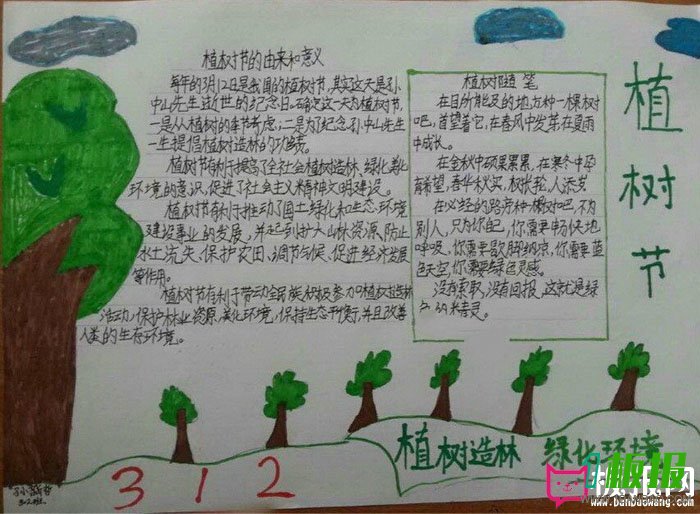 植树节的由来和意义
每年的3月12日是我国的植树节,其实这天是孙
中山先生逝世的纪念日。确定这一天为植树节,
一是从植树的季节考虑;二是为了纪念孙中山先生
一生提倡植树造林的功绩。
植树节有利于提高了全社会植树造林、绿化美化
环境的意识,促进了社会主义精神文明建设。
植树节有利于推动了国土绿化和生态环境
建设事业的发展,并起到扩大山林资源、防止
水土流失、保护农田、调节气候、促进经济发展
等作用。
植树节有利于带动全民族积极参加植树造林
活动,保护林业资源,美化环境,保持生态平衡,并且改善
人类的生存环境。
植树随笔
在目所能及的地方种一棵树
吧,首望着它,在春风中发芽在夏雨
中成长。
在金秋中硕果累累,在寒冬中孕
育希望,春华秋实,树长轮,人添岁
在必经的路旁种一棵树吧,不为
别人,只为自己,你需要畅快地
呼吸,你需要歇脚纳凉,你需要蓝
色天空,你需要绿色灵感。
没有索取,没有回报,这就是绿
色的精灵。
植树节
植树造林 绿化环境
3 1 2
3.2班
板报网
www.banbaowang.com